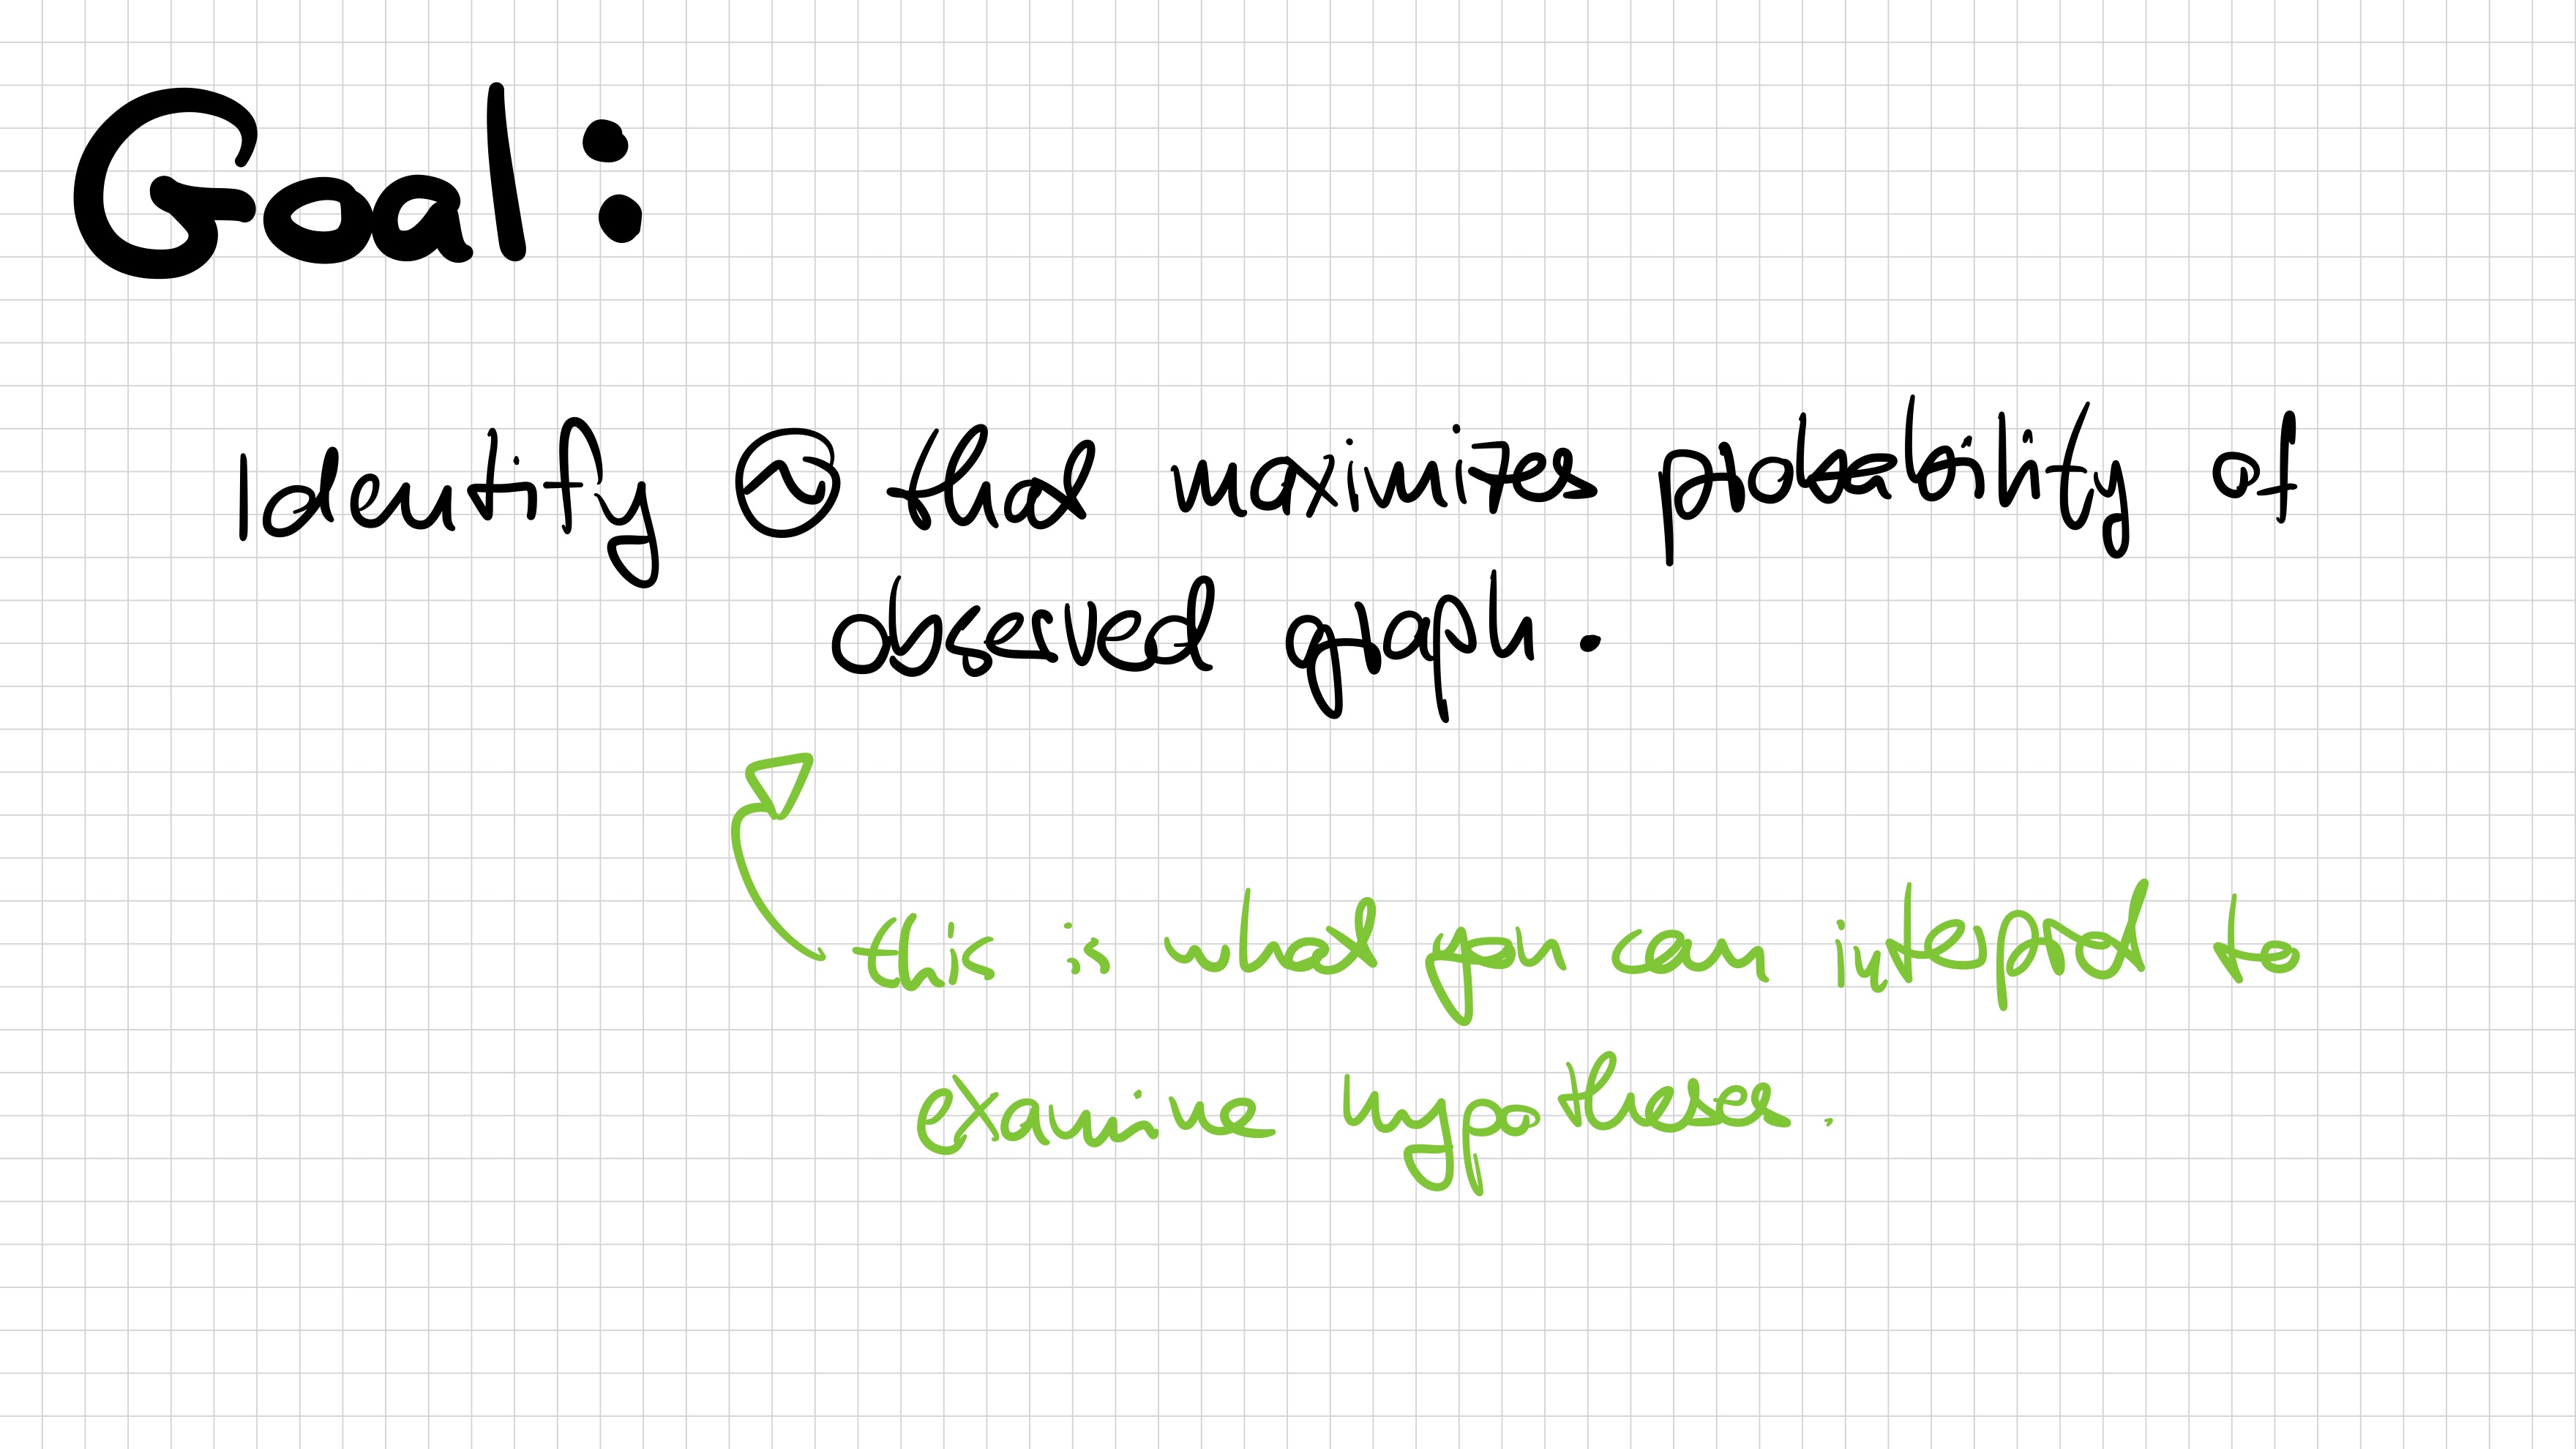 Goal:
Identify Θ that maximizes probability of
observed graph.
this is what you can interpret to
examine hypotheses.